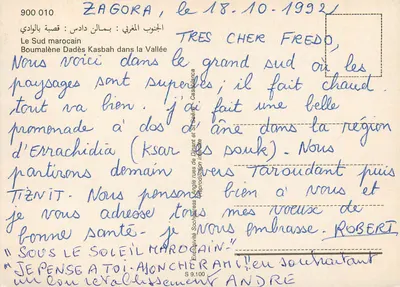 900 010
ZAGORA, le 18.10.1992
الجنوب المغربي : بـومالن دادس : قصبة بالوادي
Le Sud marocain
Boumalène Dadès Kasbah dans la Vallée
TRES CHER FREDO,
Nous voici dans le grand sud où les
paysages sont superbes ; il fait chaud
tout va bien. j'ai fait une belle
promenade à dos d'âne dans la région
d'Errachidia (Ksar es souk). Nous
partirons demain vers Taroudant puis
TIZNIT. Nous pensons bien à vous et
je vous adresse tous mes voeux de
bonne santé. je vous embrasse. ROBERT
"SOUS LE SOLEIL MAROCAIN"
"JE PENSE A TOI-MON CHER AMI" en souhaitant
un bon retablissement ANDRÉ
S 9.100